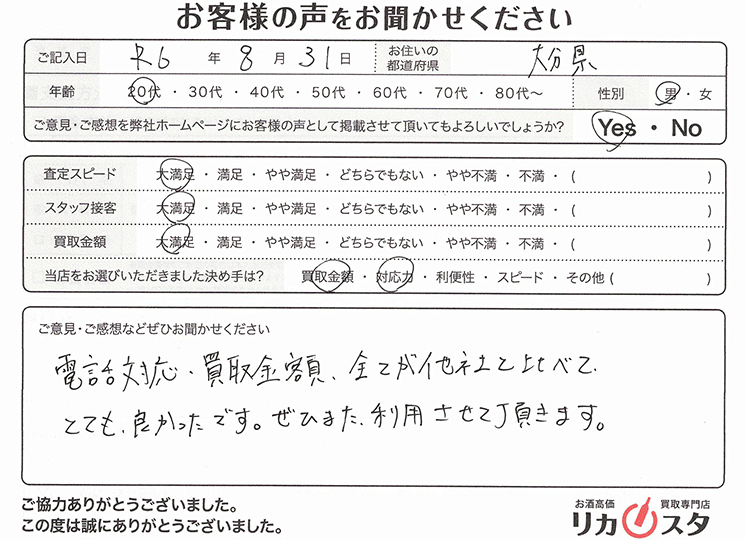 お客様の声をお聞かせください
ご記入日 R6 年 8 月 31 日 お住いの都道府県 大分県
年齢 20代 ・ 30代 ・ 40代 ・ 50代 ・ 60代 ・ 70代 ・ 80代〜 性別 男 ・ 女
ご意見・ご感想を弊社ホームページにお客様の声として掲載させて頂いてもよろしいでしょうか? Yes ・ No
査定スピード 大満足 ・ 満足 ・ やや満足 ・ どちらでもない ・ やや不満 ・ 不満 ・ ( )
スタッフ接客 大満足 ・ 満足 ・ やや満足 ・ どちらでもない ・ やや不満 ・ 不満 ・ ( )
買取金額 大満足 ・ 満足 ・ やや満足 ・ どちらでもない ・ やや不満 ・ 不満 ・ ( )
当店をお選びいただきました決め手は? 買取金額 ・ 対応力 ・ 利便性 ・ スピード ・ その他 ( )
ご意見・ご感想などぜひお聞かせください
電話対応、買取金額、全てが他社と比べて、
とても、良かったです。ぜひまた、利用させて頂きます。
ご協力ありがとうございました。
この度は誠にありがとうございました。
お酒高価 買取専門店
リカスタ